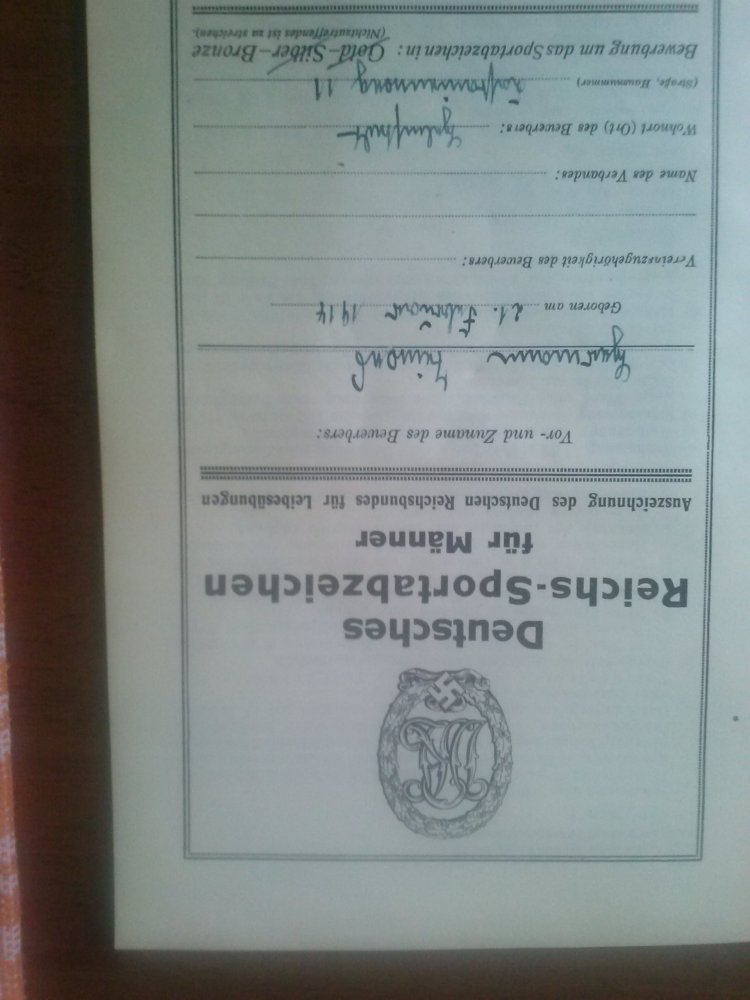 Deutsches
Reichs-Sportabzeichen
für Männer
Auszeichnung des Deutschen Reichsbundes für Leibesübungen
Vor- und Zuname des Bewerbers:
Geboren am 21. Februar 1914
Vereinszugehörigkeit des Bewerbers:
Name des Verbandes:
Wohnort (Ort) des Bewerbers:
(Straße, Hausnummer) 11
Bewerbung um das Sportabzeichen in: Gold-Silber-Bronze
(Nichtzutreffendes ist zu streichen).